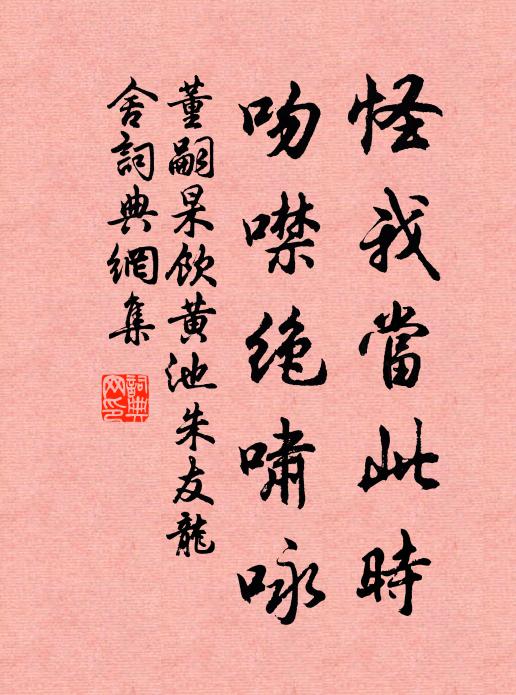 怪我當此時
吻噤絶嘯咏
董嗣杲飲黄池朱友龍
舍詞典網集
詞典
网印